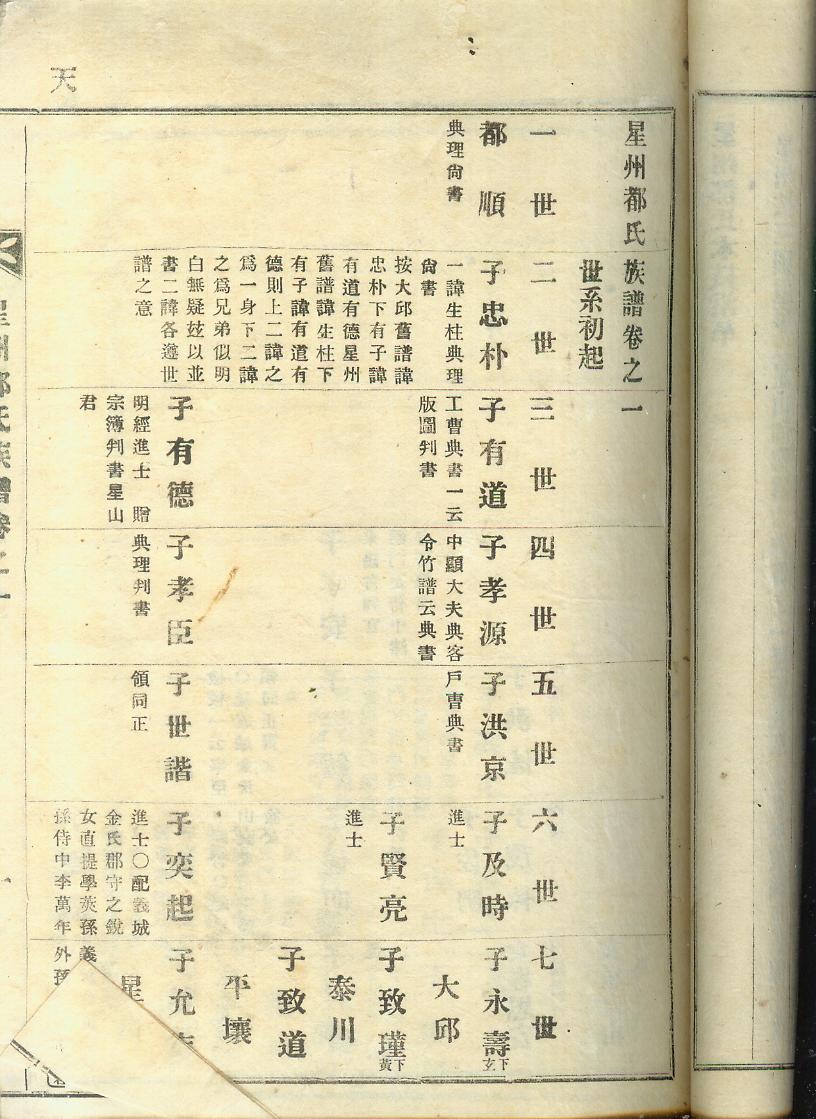 天
星州都氏族譜卷之一
世系初起
一世
二世
三世
四世
五世
六世
七世
都順
典理尙書
子忠朴
一諱生柱典理
尙書
按大邱舊譜諱
忠朴下有子諱
有道有德星州
舊譜諱生柱下
有子諱有道有
德則上二諱之
爲一身下二諱
之爲兄弟似明
白無疑玆以並
書二諱各遵世
譜之意
子有道
工曹典書一云
版圖判書
子孝源
中顯大夫典客
令竹譜云典書
子洪京
戶曹典書
子及時
進士
子永壽
下玄
大邱
子賢亮
進士
子致瑾
下黃
泰川
子致道
平壤
子有德
明經進士 贈
宗簿判書星山
君
子孝臣
典理判書
子世諧
領同正
子奕起
進士〇配義城
金氏郡守之銳
女直提學英孫義
孫侍中李萬年外孫
子允
星
星州都氏族譜卷之一